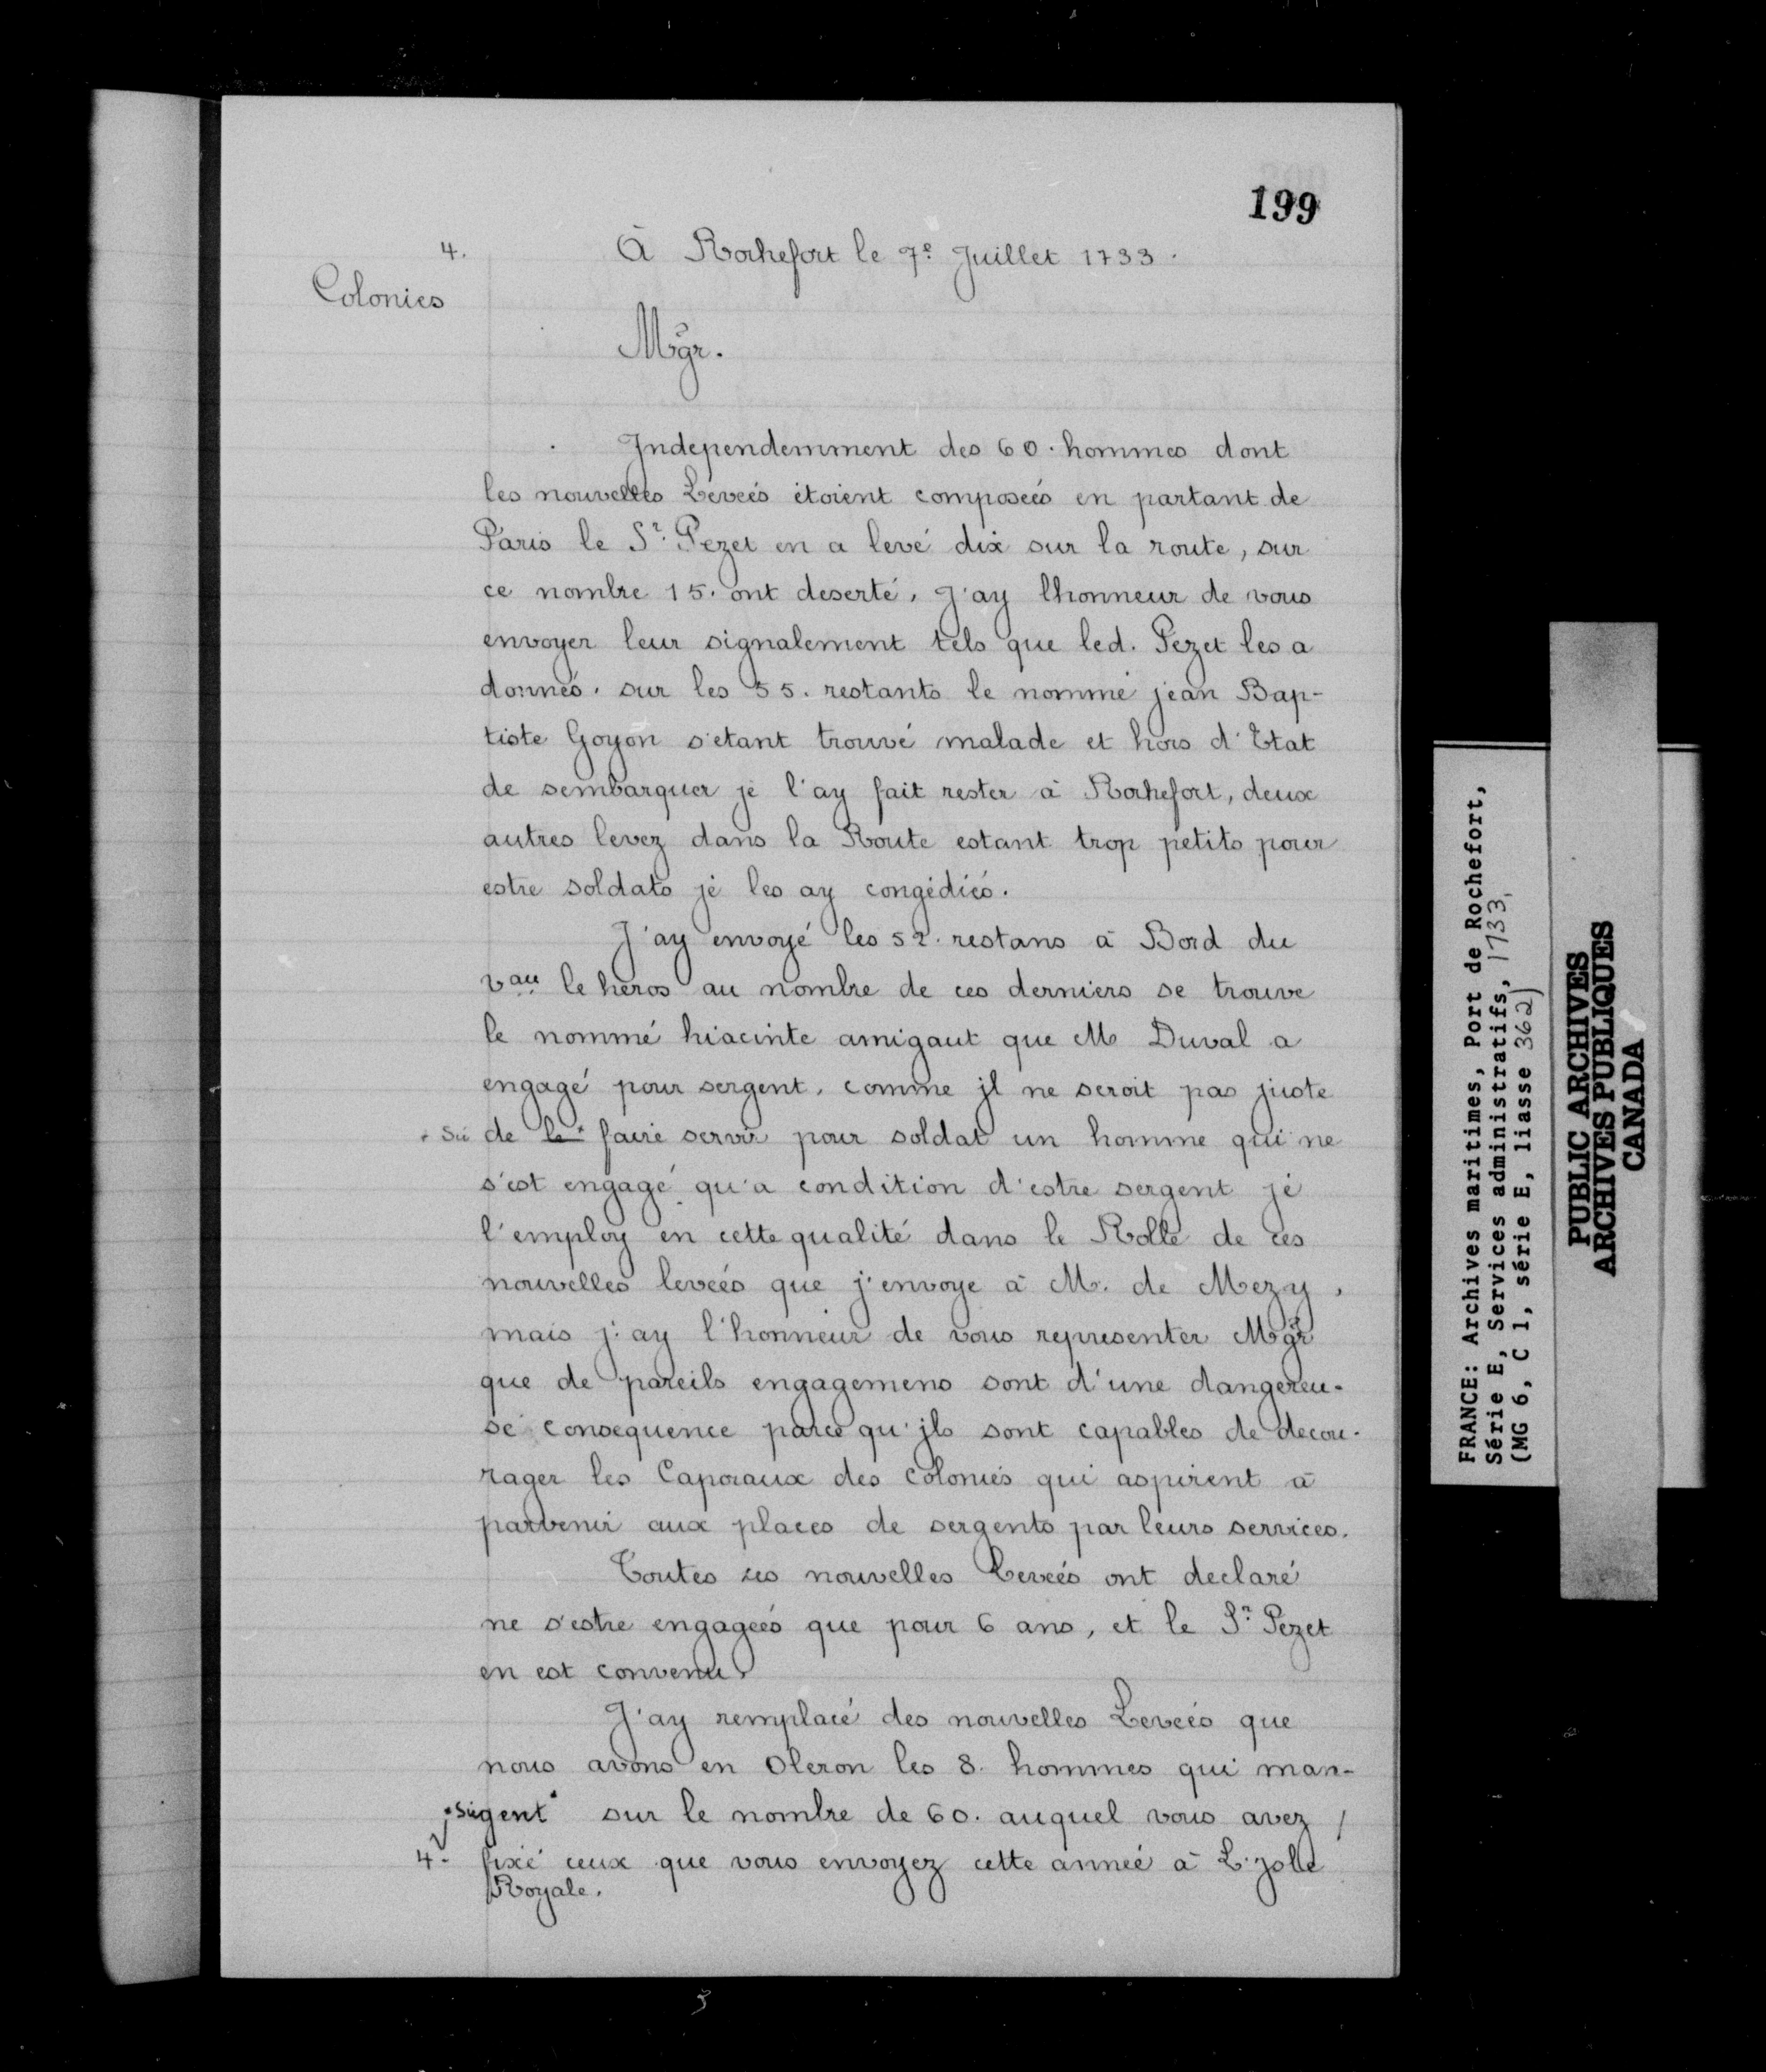 199
4.
À Rochefort le 7e Juillet 1733.
Colonies
Mgr.
Independemment des 60. hommes dont
les nouvelles Levées étoient composées en partant de
Paris le Sr. Pezet en a levé dix sur la route, sur
ce nombre 15. ont deserté. J'ay lhonneur de vous
envoyer leur signalement tels que led. Pezet les a
donnés. sur les 55. restants le nommé jean Bap-
tiste Goyon s'etant trouvé malade et hors d'Etat
de sembarquer je l'ay fait rester à Rochefort, deux
autres levez dans la Route estant trop petits pour
estre soldats je les ay congédiés.
J'ay envoyé les 52. restans à Bord du
vau le heros au nombre de ces derniers se trouve
le nommé hiacinte amigaut que M Duval a
engagé pour sergent. comme jl ne seroit pas juste
+ Sic de le + faire servir pour soldat un homme qui ne
s'est engagé qu'a condition d'estre sergent je
l'employ en cette qualité dans le Rolle de ces
nouvelles levées que j'envoye à M. de Mezy,
mais j'ay l'honneur de vous representer Mgr
que de pareils engagemens sont d'une dangereu-
se consequence parce qu'jls sont capables de decou-
rager les Caporaux des colonies qui aspirent à
parvenir aux places de sergents par leurs services.
Toutes ces nouvelles Levées ont declaré
ne s'estre engagées que pour 6 ans, et le Sr. Pezet
en est convenu.
J'ay remplacé des nouvelles Levées que
nous avons en Oleron les 8. hommes qui man-
* sic gent * sur le nombre de 60. auquel vous avez /
4. fixé ceux que vous envoyez cette année à L'jsle
Royale.
FRANCE: Archives maritimes, Port de Rochefort,
Série E, Services administratifs, 1733,
(MG 6, C 1, série E, liasse 362)
PUBLIC ARCHIVES
ARCHIVES PUBLIQUES
CANADA